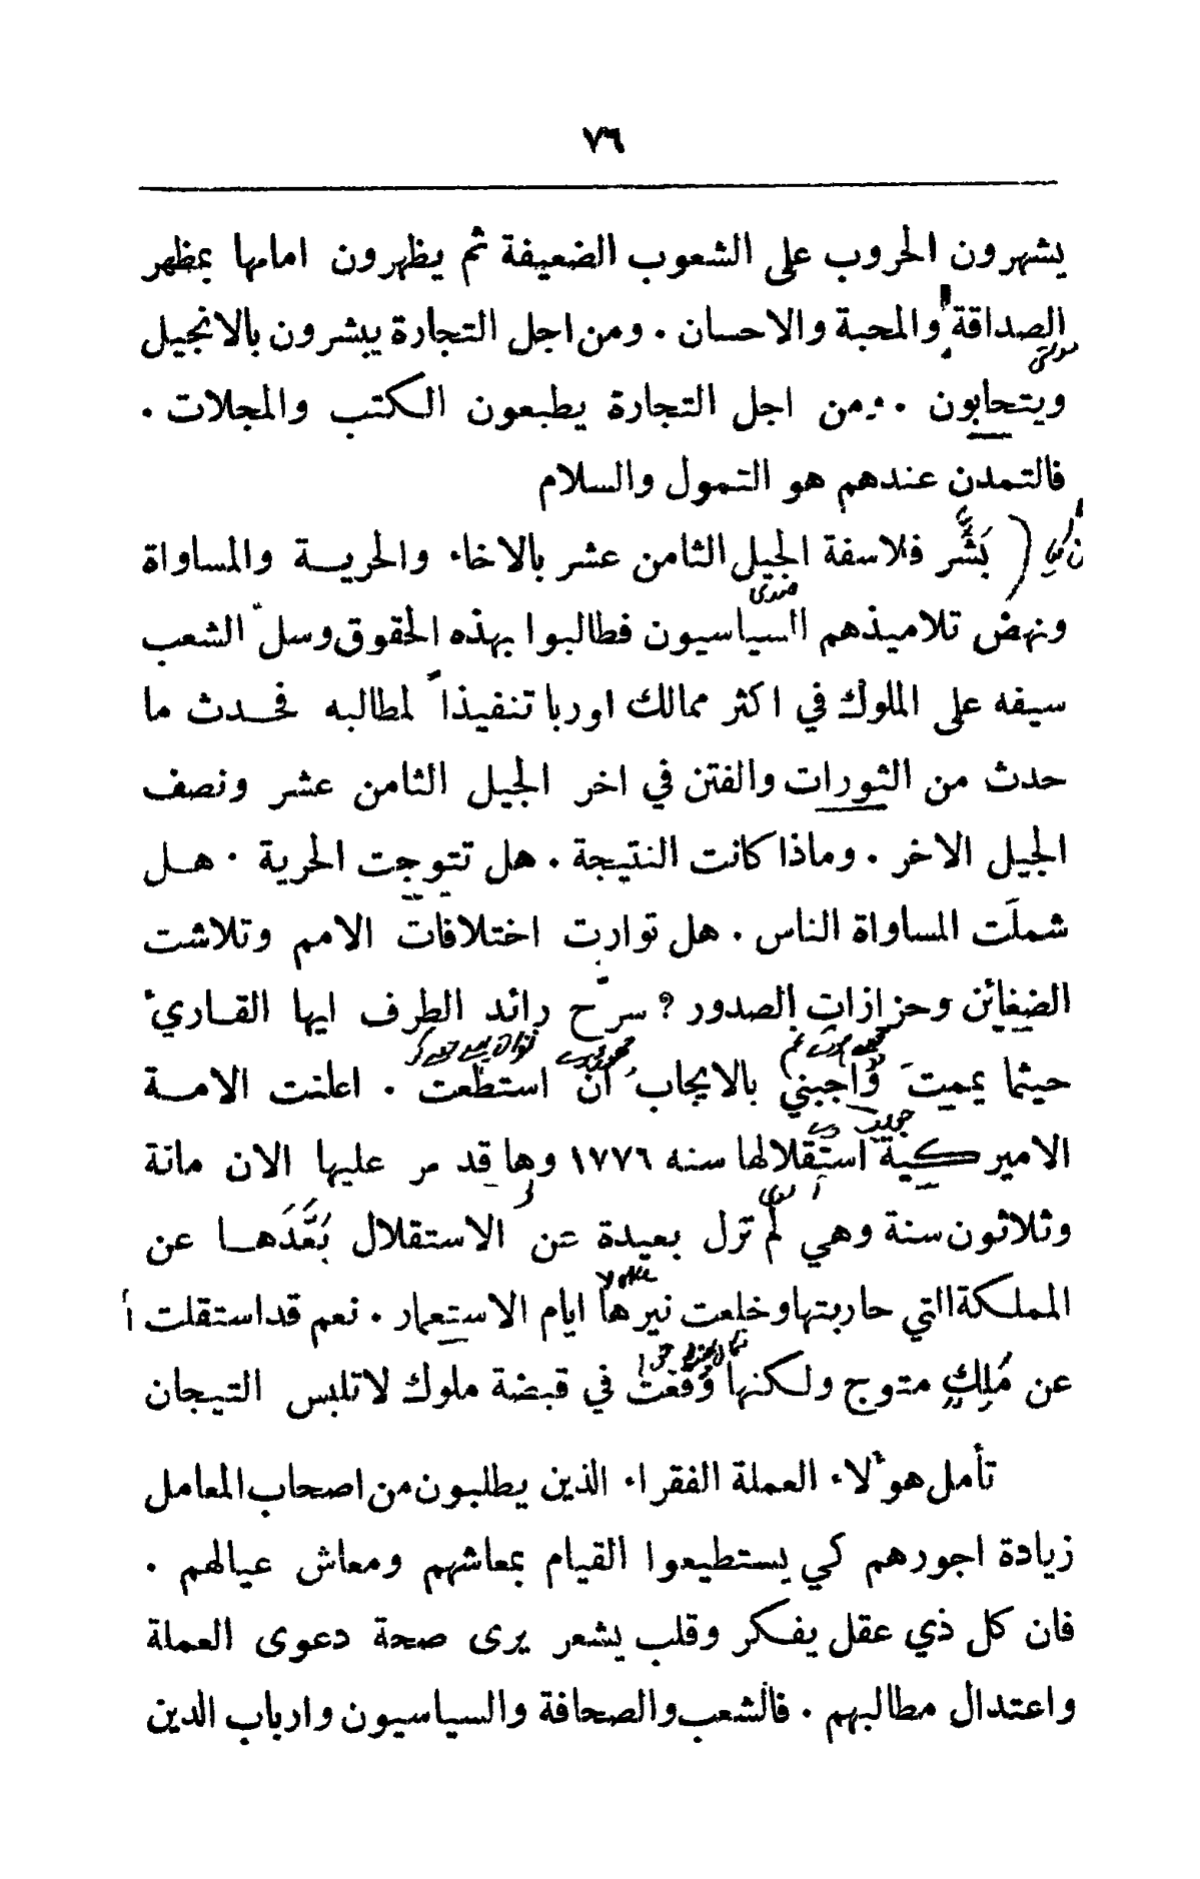 ٧٦
يشهرون الحروب على الشعوب الضعيفة ثم يظهرون امامها بمظهر
الصداقة والمحبة والاحسان . ومن اجل التجارة يبشرون بالانجيل
ويتحابون . ومن اجل التجارة يطبعون الكتب والمجلات .
فالتمدن عندهم هو التمول والسلام
بَشَّر فلاسفة الجيل الثامن عشر بالاخاء والحريـة والمساواة
ونهض تلاميذهم السياسيون فطالبوا بهذه الحقوق وسلّ الشعب
سيفه على الملوك في اكثر ممالك اوربا تنفيذاً لمطالبه فحـدث ما
حدث من الثورات والفتن في اخر الجيل الثامن عشر ونصف
الجيل الاخر . وماذا كانت النتيجة . هل تتوجت الحرية . هـل
شملَت المساواة الناس . هل توارت اختلافات الامم وتلاشت
الضغائن وحزازات الصدور ? سرّح رائد الطرف ايها القـاريء
حيثما يممت واجبني بالايجاب ان استطعت . اعلنت الامـة
الاميركية استقلالها سنه ١٧٧٦ وها قد مر عليها الان مائة
وثلاثون سنة وهي لم تزل بعيدة عن الاستقلال بُعَّدَهـا عن
المملكة التي حاربتها وخلعت نيرها ايام الاستعمار . نعم قد استقلت
عن مَلِكٍ متوج ولكنها وقعت في قبضة ملوك لا تلبس التيجان
تأمل هوٴلاء العملة الفقراء الذين يطلبون من اصحاب المعامل
زيادة اجورهم كي يستطيعوا القيام بمعاشهم ومعاش عيالهم .
فان كل ذي عقل يفكر وقلب يشعر يرى صحة دعوى العملة
واعتدال مطالبهم . فالشعب والصحافة والسياسيون وارباب الدين